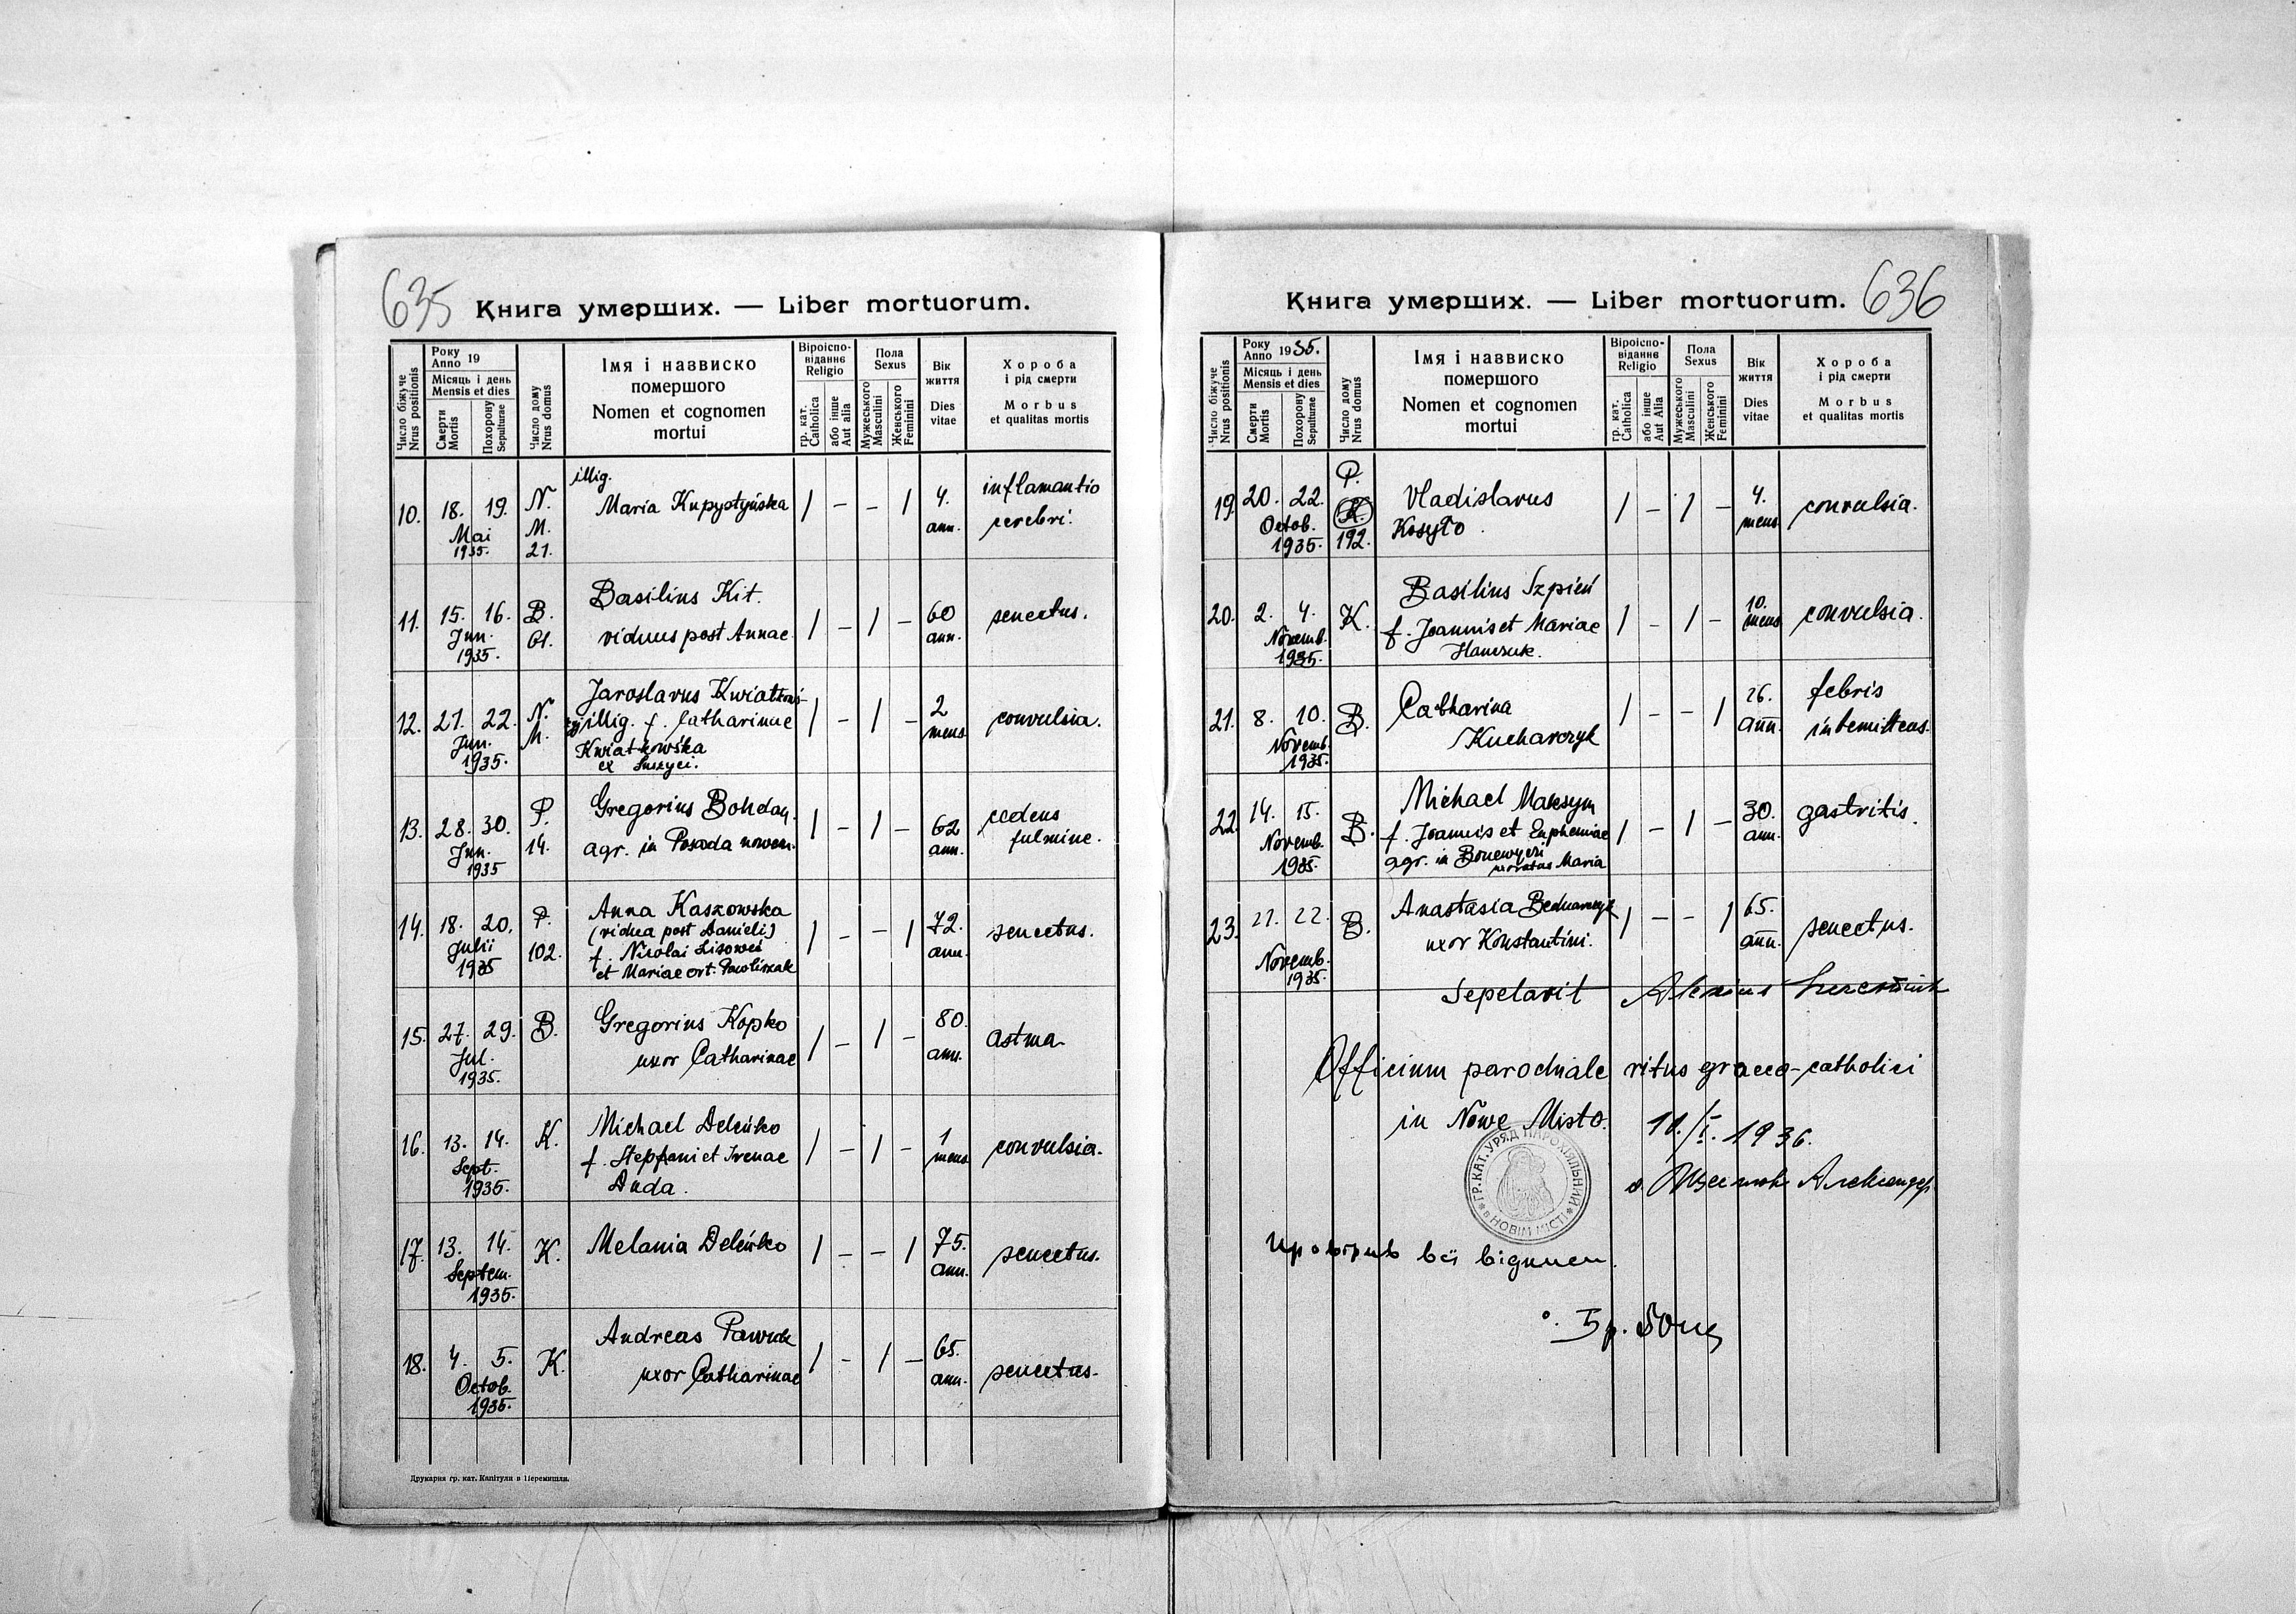 635
Книга умерших. — Liber mortuorum.
Число біжуче
Nrus positionis
Року
Anno 19
Місяць і день
Mensis et dies
Смерти
Mortis
Похорону
Sepulturae
Число дому
Nrus domus
Імя і назвиско
помершого
Nomen et cognomen
mortui
Віроіспо-
віданнє
Religio
гр. кат.
Catholica
або інше
Aut alia
Пола
Sexus
Мужеського
Masculini
Женського
Feminini
Вік
життя
Dies
vitae
Хороба
і рід смерти
Morbus
et qualitas mortis
10. 18. 19. Mai 1935. N. M. 21.
illig.
Maria Kupystyńska / – – / 4. ann.
inflamantio
cerebri.
11. 15. 16. Jun. 1935. B. 61.
Basilius Kit.
viduus post Annae / – / – 60 ann. senectus.
12. 21. 22. Jun. 1935. N. M.
Jaroslavus Kwiatkows-
illig. f. Catharinae / – / – 2 mens. convulsia.
Kwiatkowska
ex Suszyci.
13. 28. 30. Jun. 1935 P. 14.
Gregorius Bohdan.
agr. in Posada nowom. / – / – 62 ann.
cedens
fulmine.
14. 18. 20. Julii 1935 P. 102.
Anna Kaszowska
(vidua post Danieli)
f. Nicolai Lisowei / – – / 72. ann. senectus.
et Mariae ort. Pawliszak
15. 27. 29. Jul. 1935. B.
Gregorius Kopko
uxor Catharinae / – / – 80. ann. astma.
16. 13. 14. Sept. 1935. K.
Michael Deleńko
f. Stephani et Irenae / – / – 1 mens. convulsia.
Duda.
17. 13. 14. Septem. 1935. K.
Melania Deleńko / – – / 75. ann. senectus.
18. 4. 5. Octob. 1935. K.
Andreas Pawuk
uxor Catharinae / – / – 65. ann. senectus.
Друкарня гр. кат. Капітули в Перемишли.
636
Книга умерших. — Liber mortuorum.
Число біжуче
Nrus positionis
Року
Anno 1935.
Місяць і день
Mensis et dies
Смерти
Mortis
Похорону
Sepulturae
Число дому
Nrus domus
Імя і назвиско
помершого
Nomen et cognomen
mortui
Віроіспо-
віданнє
Religio
гр. кат.
Catholica
або інше
Aut Alia
Пола
Sexus
Мужеського
Masculini
Женського
Feminini
Вік
життя
Dies
vitae
Хороба
і рід смерти
Morbus
et qualitas mortis
19 20. 22. Octob. 1935. P. K. 192.
Vladislavus
Kosyło. / – / – 4. mens convulsia.
20. 2. 4. Novemb. 1935. K.
Basilius Szpień
f. Joannis et Mariae / – / – 10. mens convulsia.
Hanczuk.
21. 8. 10. Novemb. 1935. B.
Catharina
Kucharczyk / – – / 26. ann.
febris
intemitteas.
22. 14. 15. Novemb. 1935. B.
Michael Maksym
f. Joannis et Euphemiae / – / – 30. ann. gastritis.
agr. in Bonewyczi
uxoratus Maria
23. 21. 22. Novemb. 1935. B.
Anastasia Bednarczyk
uxor Konstantini. / – – / 65. ann. senectus.
Sepelavit Alexius
Officium parochiale ritus graeco-catholici
in Nowe Misto. 10./I. 1936.
ГР. КАТ. УРЯД ПАРОХІЯЛЬНИЙ
в НОВІМ МІСТІ
Провірив всі відписи